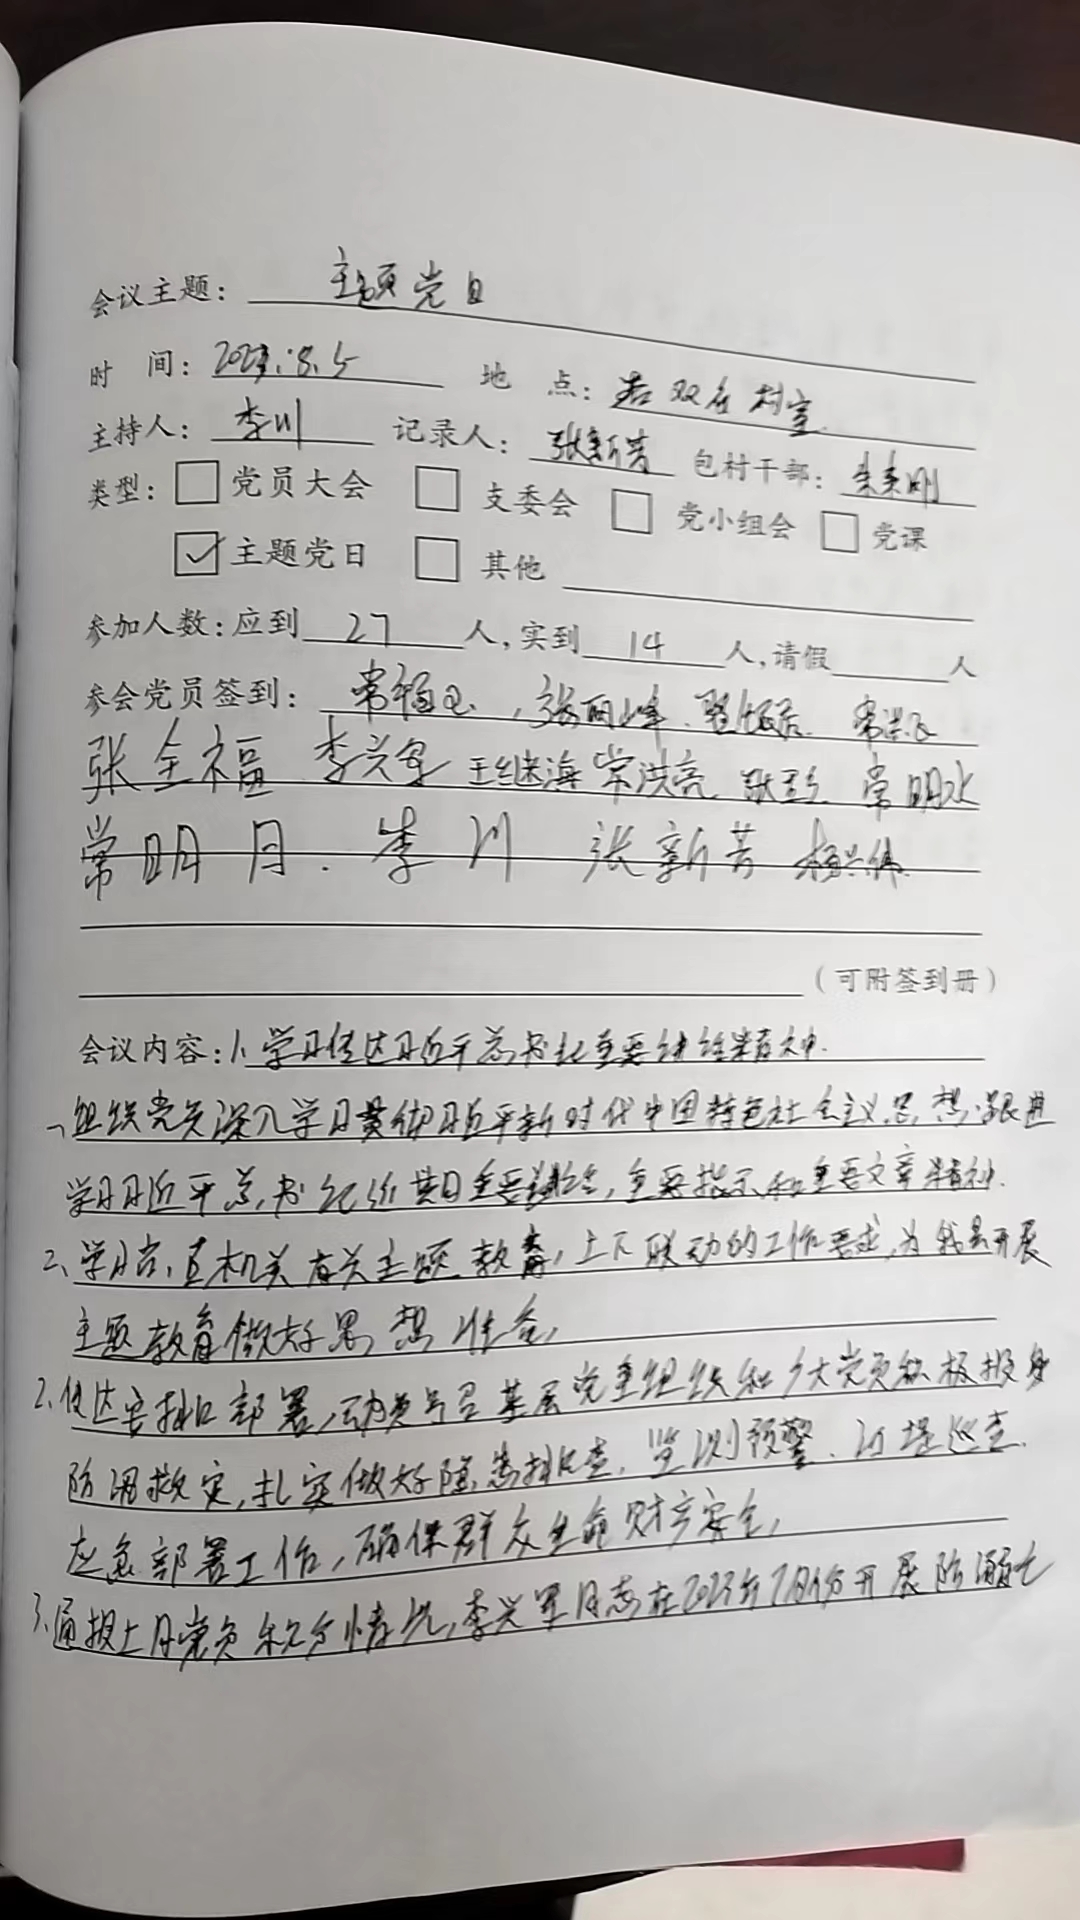 会议主题: 主题党日
时 间: 2023.8.5 地 点: 村室
主持人: 李川 记录人: 张新芳 包村干部: 刚
类型: 党员大会 支委会 党小组会 党课
主题党日 其他
参加人数: 应到 27 人, 实到 14 人, 请假 人
参会党员签到: 常福 , 张丽峰.
张全福 李兴军 王继海 常洪亮 常明水
常明月. 李川 张新芳 杨兴伟
(可附签到册)
会议内容: 1、学习传达习近平总书记重要讲话精神.
一、组织党员深入学习贯彻习近平新时代中国特色社会主义思想,跟进
学习习近平总书记 重要讲话, 重要指示和重要文章精神.
二、学习 直机关有关主题教育, 上下联动的工作要求, 为我县开展
主题教育做好思想准备,
2、传达安排部署, 动员号召基层党支组织和广大党员积极投身
防汛救灾, 扎实做好隐患排查, 监测预警. 河堤巡查.
应急部署工作, 确保群众生命财产安全,
3、通报上月党员积分情况, 李兴军同志在2023年7月份开展防溺亡